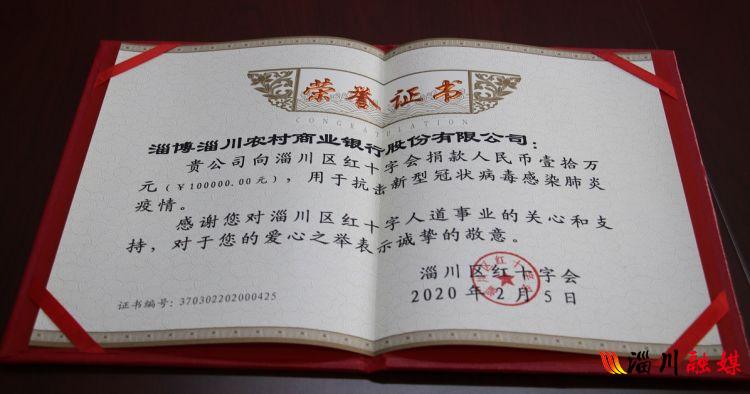 荣誉证书
CONGRATULATION
淄博淄川农村商业银行股份有限公司:
贵公司向淄川区红十字会捐款人民币壹拾万
元(￥100000.00元),用于抗击新型冠状病毒感染肺炎
疫情。
感谢您对淄川区红十字人道事业的关心和支
持,对于您的爱心之举表示诚挚的敬意。
淄川区红十字会
2020年2月5日
证书编号:370302202000425
淄川融媒